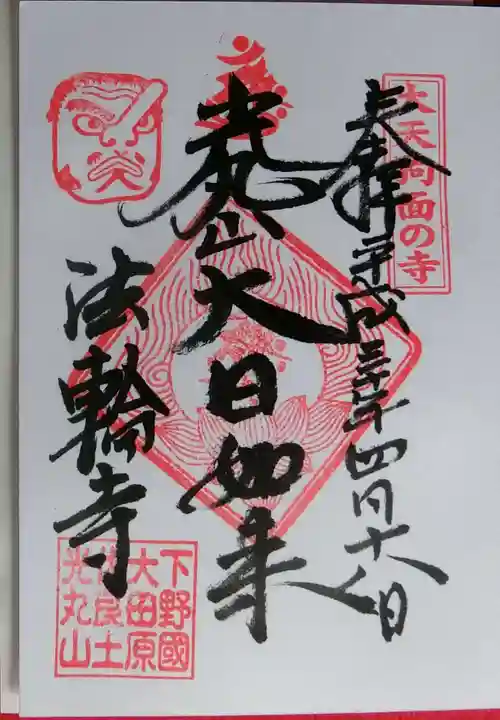 大天狗面の寺
奉拝 平成三十年四月十八日
光丸山大日如来
法輪寺
下野國
大田原
佐良土
光丸山